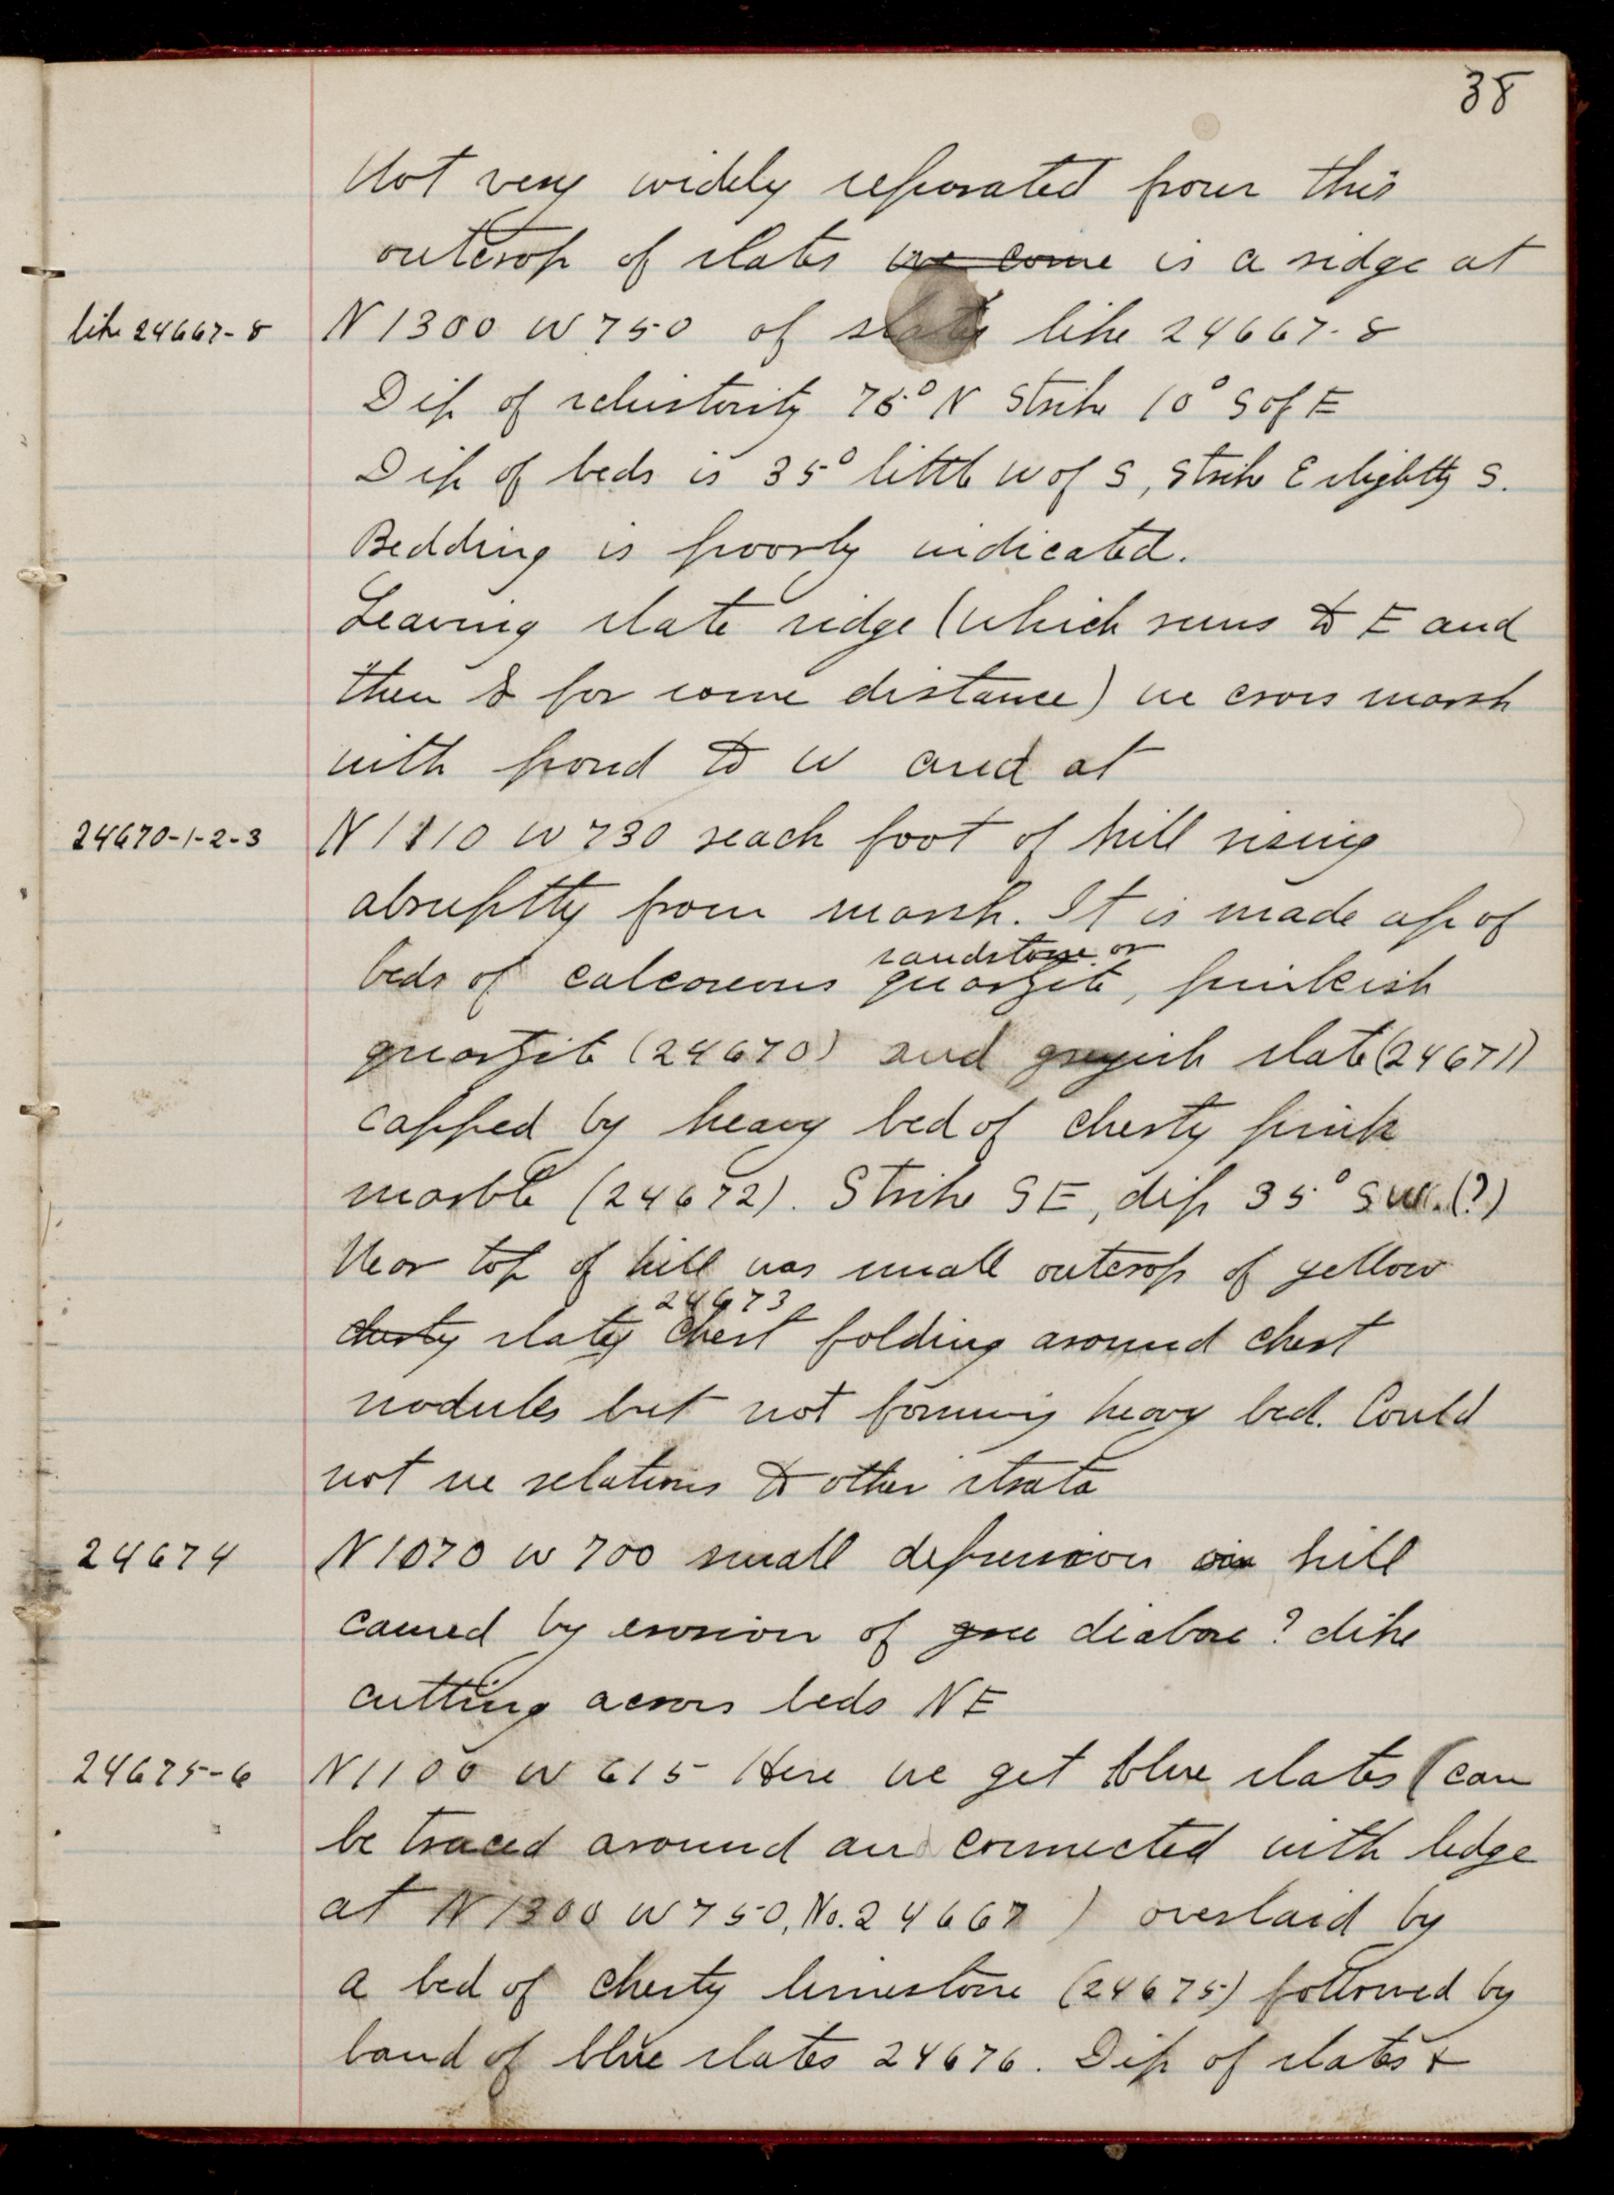 38
Not very widely separated from this
outcrop of slates we come is a ridge at
like 24667-8
N 1300 W 750 of slates like 24667-8
Dip of schistosity 75° N Strike 10° S of E
Dip of beds is 35° little W of S, strike E slightly S.
Bedding is poorly indicated.
Leaving slate ridge (which runs to E and
then S for some distance) we cross marsh
with pond to W and at
24670-1-2-3
N 1110 W 730 reach foot of hill rising
abruptly from marsh. It is made up of
sandstone or
beds of calcareous quartzite, pinkish
quartzite (24670) and greyish slate (24671)
capped by heavy bed of cherty pink
marble (24672). Strike SE, dip 35° SW.(?)
Near top of hill was small outcrop of yellow
24673
cherty slaty chert folding around chert
nodules but not forming heavy bed. Could
not see relations to other strata
24674
N 1070 W 700 small depression in hill
caused by erosion of diabase? dike
cutting across beds NE
24675-6
N 1100 W 615 Here we get blue slates (can
be traced around and connected with ledge
at N 1300 W 750, No. 24667) overlaid by
a bed of cherty limestone (24675) followed by
band of blue slates 24676. Dip of slates &